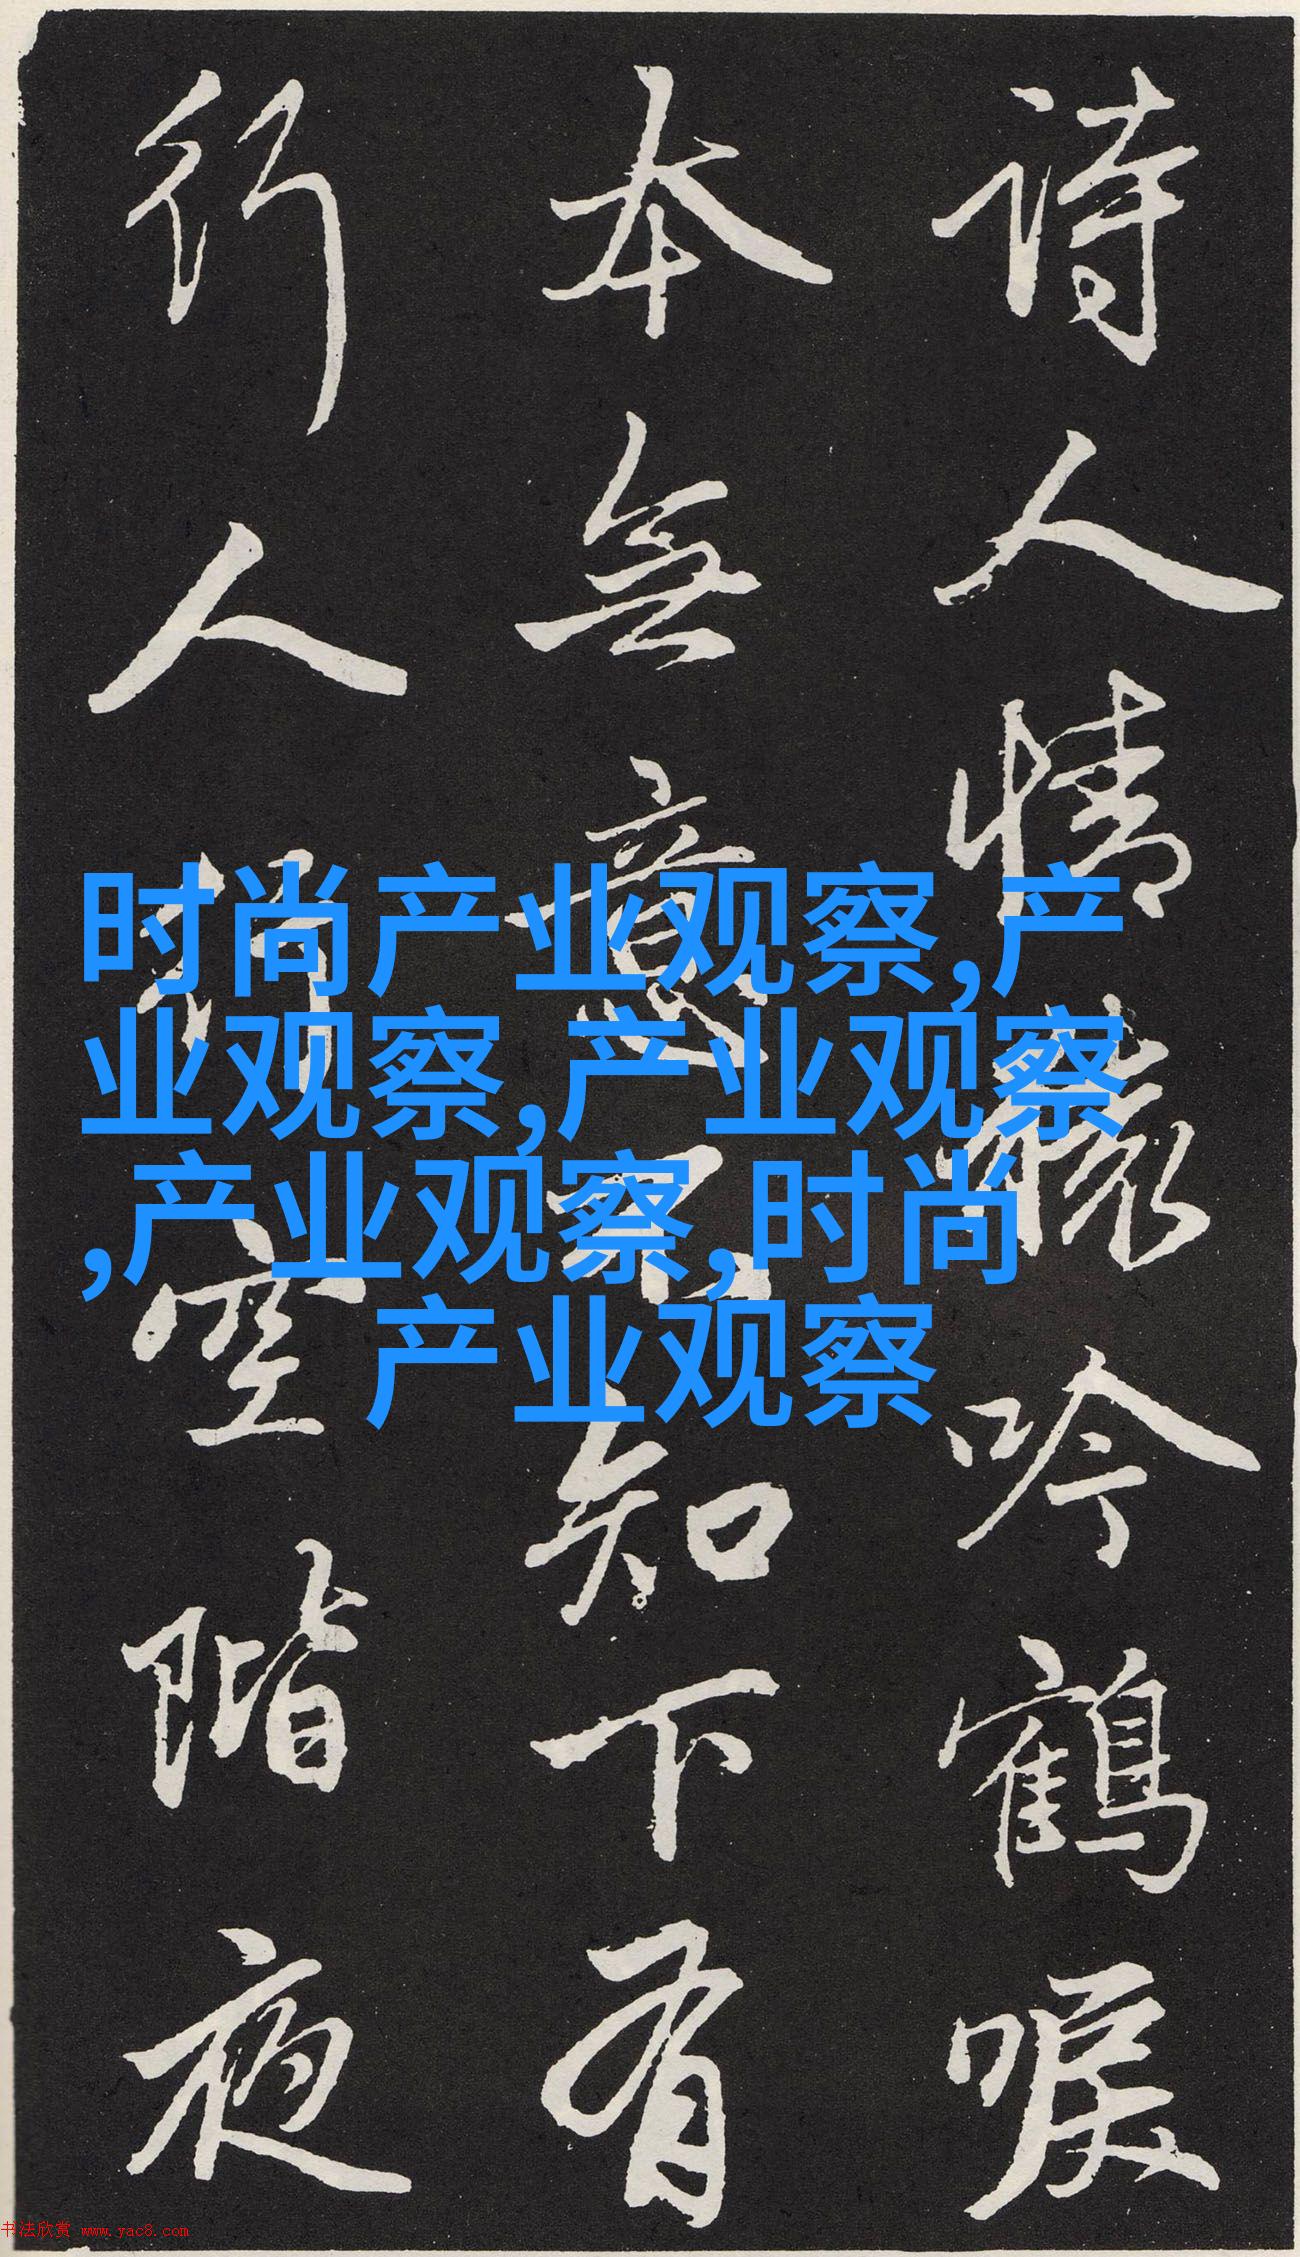 诗人情味吟鹤唳
本无意不知下有
行人行空阶夜
时尚产业观察,产
业观察,产业观察
,产业观察,时尚
产业观察
书法欣赏 www.yac8.com